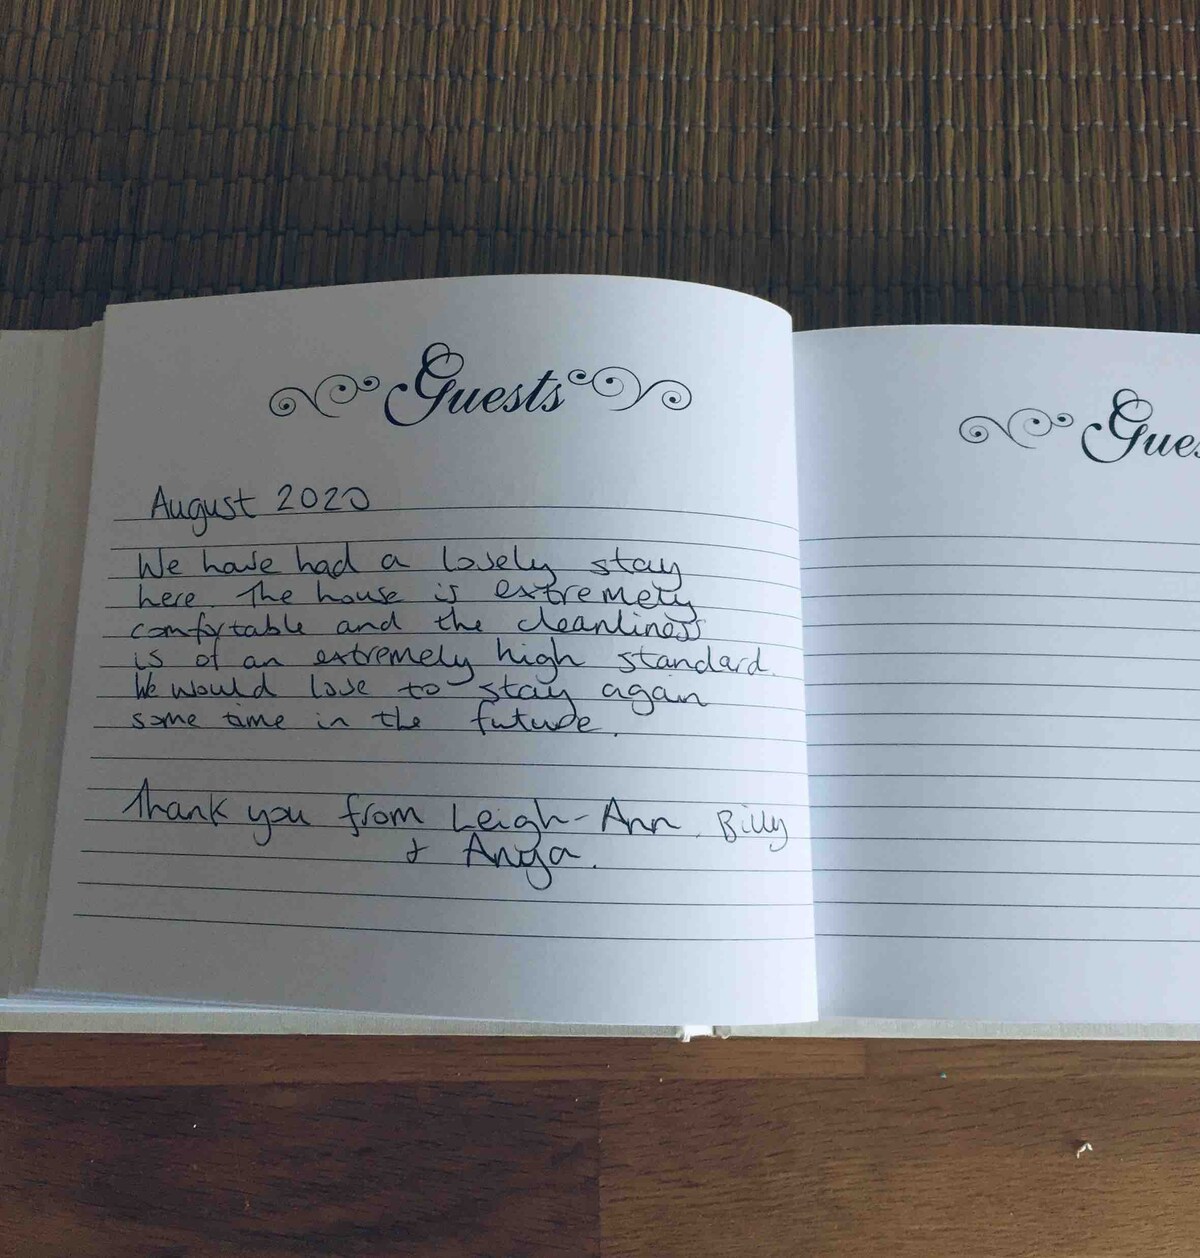 Guests
August 2020
We have had a lovely stay
here. The house is extremely
comfortable and the cleanliness
is of an extremely high standard.
We would love to stay again
some time in the future.
Thank you from Leigh-Ann, Billy
+ Anya.
Gues